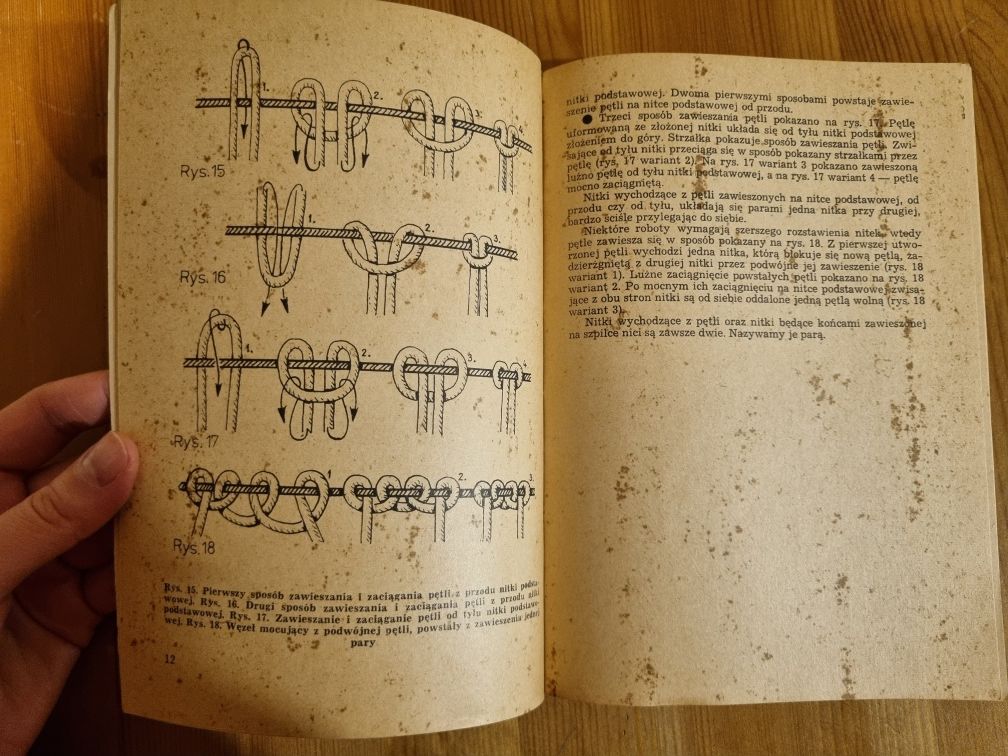 1.
2.
3.
4.
Rys.15
1.
2.
3.
Rys.16
1.
2.
3.
4.
Rys.17
1
2.
3.
Rys.18
Rys. 15. Pierwszy sposób zawieszania i zaciągania pętli z przodu nitki podsta-
wowej. Rys. 16. Drugi sposób zawieszania i zaciągania pętli z przodu nitki
podstawowej. Rys. 17. Zawieszanie i zaciąganie pętli od tyłu nitki podstawo-
wej. Rys. 18. Węzeł mocujący z podwójnej pętli, powstały z zawieszenia jednej
pary
12
nitki podstawowej. Dwoma pierwszymi sposobami powstaje zawie-
szenie pętli na nitce podstawowej od przodu.
● Trzeci sposób zawieszania pętli pokazano na rys. 17. Pętlę
uformowaną ze złożonej nitki układa się od tyłu nitki podstawowej
złożeniem do góry. Strzałka pokazuje sposób zawieszania pętli. Zwi-
sające od tyłu nitki przeciąga się w sposób pokazany strzałkami przez
pętlę (rys. 17 wariant 2). Na rys. 17 wariant 3 pokazano zawieszoną
luźno pętlę od tyłu nitki podstawowej, a na rys. 17 wariant 4 — pętlę
mocno zaciągniętą.
Nitki wychodzące z pętli zawieszonych na nitce podstawowej, od
przodu czy od tyłu, układają się parami jedna nitka przy drugiej,
bardzo ściśle przylegając do siebie.
Niektóre roboty wymagają szerszego rozstawienia nitek, wtedy
pętle zawiesza się w sposób pokazany na rys. 18. Z pierwszej utwo-
rzonej pętli wychodzi jedna nitka, którą blokuje się nową pętlą, za-
dzierżgniętą z drugiej nitki przez podwójne jej zawieszenie (rys. 18
wariant 1). Luźne zaciągnięcie powstałych pętli pokazano na rys. 18
wariant 2. Po mocnym ich zaciągnięciu na nitce podstawowej zwisa-
jące z obu stron nitki są od siebie oddalone jedną pętlą wolną (rys. 18
wariant 3).
Nitki wychodzące z pętli oraz nitki będące końcami zawieszonej
na szpilce nici są zawsze dwie. Nazywamy je parą.